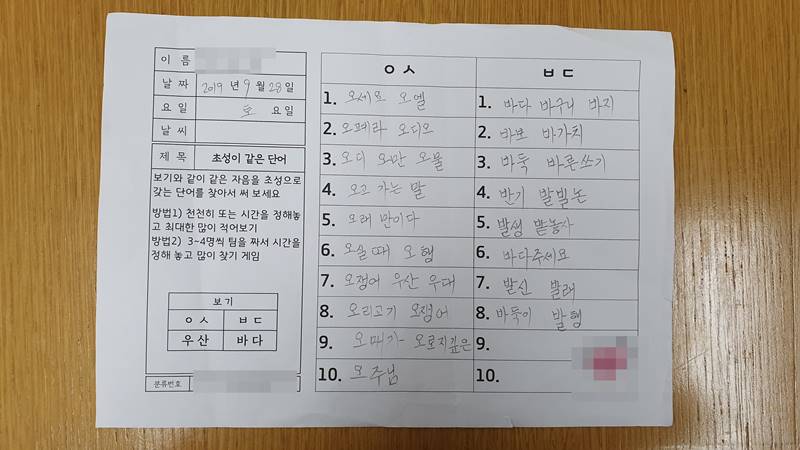 이 름
날 짜 2019 년 9 월 28 일
요 일 토 요일
날 씨
제 목 초성이 같은 단어
보기와 같이 같은 자음을 초성으로
갖는 단어를 찾아서 써 보세요
방법1) 천천히 또는 시간을 정해놓
고 최대한 많이 적어보기
방법2) 3~4명씩 팀을 짜서 시간을
정해 놓고 많이 찾기 게임
보기
ㅇㅅ ㅂㄷ
우산 바다
분류번호
ㅇㅅ
1. 오세로 오엘
2. 오페라 오디오
3. 오디 오만 오물
4. 오고 가는 말
5. 오래 만이다
6. 오실 때 오행
7. 오정어 우산 우대
8. 오리고기 오징어
9. 오래가 오로지깊은
10. 오 주님
ㅂㄷ
1. 바다 바구니 바지
2. 바보 바가치
3. 바둑 바른쓰기
4. 반기 발빌논
5. 발생 놓자
6. 바다주세요
7. 발신 발래
8. 바둑이 발행
9.
10.